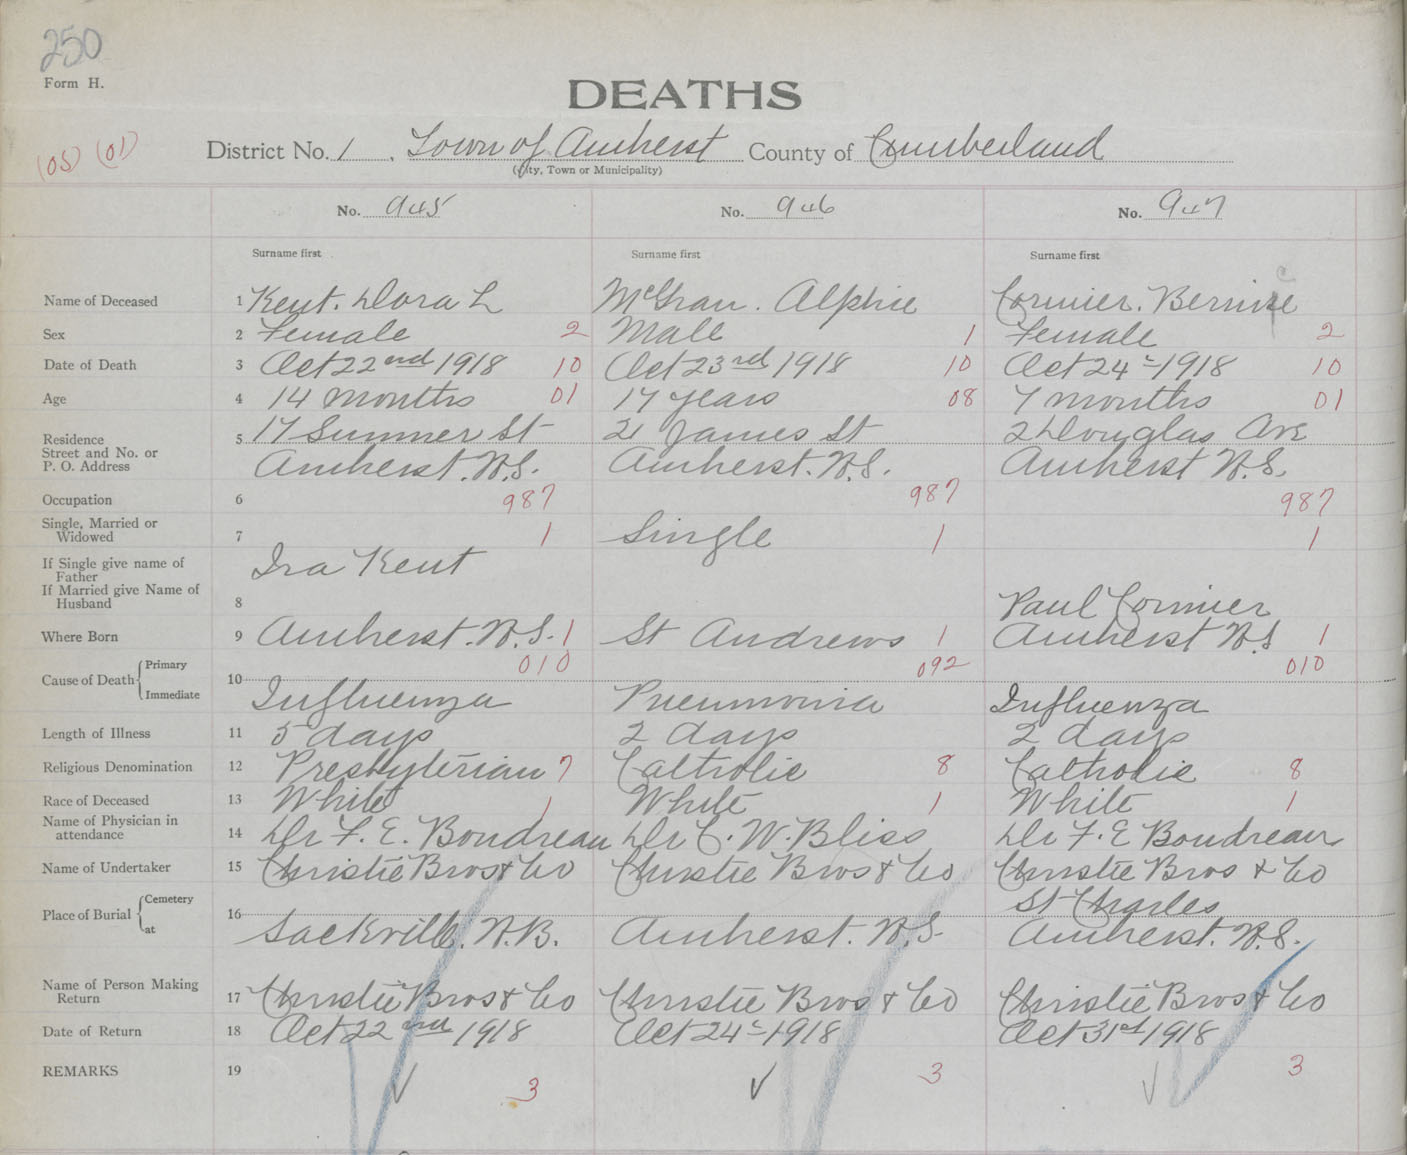 250
Form H.
DEATHS
(05) (01)
District No. 1, Town of Amherst County of Cumberland
(City, Town or Municipality)
No. 945 No. 946 No. 947
Surname first Surname first Surname first
Name of Deceased 1 Kent. Dora L McGran. Alphie Cormier. Bernice
Sex 2 Female 2 Male 1 Female 2
Date of Death 3 Oct 22nd 1918 10 Oct 23rd 1918 10 Oct 24 1918 10
Age 4 14 months 01 17 years 08 7 months 01
Residence 5 17 Summer St 21 James St 2 Douglas Ave
Street and No. or
P. O. Address Amherst. N.S. Amherst. N.S. Amherst N.S.
Occupation 6 987 987 987
Single, Married or
Widowed 7 1 Single 1 1
If Single give name of
Father Ira Kent
If Married give Name of
Husband 8 Paul Cormier
Where Born 9 Amherst. N.S. 1 St Andrews 1 Amherst N.S 1
Cause of Death Primary 10 010 092 010
Immediate Influenza Pneumonia Influenza
Length of Illness 11 5 days 2 days 2 days
Religious Denomination 12 Presbyterian 7 Catholic 8 Catholic 8
Race of Deceased 13 White 1 White 1 White 1
Name of Physician in
attendance 14 Dr F. E. Boudreau Dr C. W. Bliss Dr F. E Boudreau
Name of Undertaker 15 Christie Bros & Co Christie Bros & Co Christie Bros & Co
Place of Burial Cemetery 16 St Charles
at Sackville. N.B. Amherst. N.S. Amherst. N.S.
Name of Person Making
Return 17 Christie Bros & Co Christie Bros & Co Christie Bros & Co
Date of Return 18 Oct 22nd 1918 Oct 24 1918 Oct 31st 1918
REMARKS 19 3 3 3